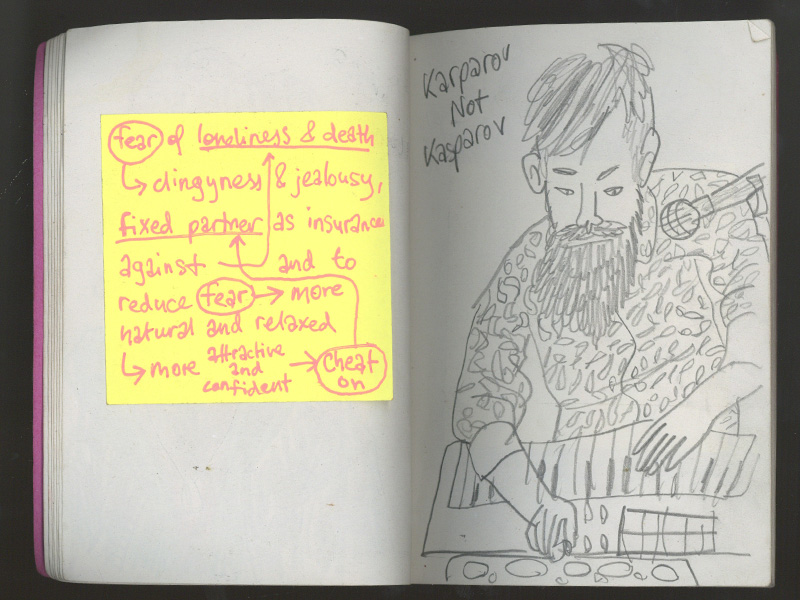 fear of loneliness & death
↳ clingyness & jealousy,
fixed partner as insurance
against and to
reduce fear → more
natural and relaxed
↳ more attractive
and
confident → Cheat
on
Karparov
Not
Kasparov